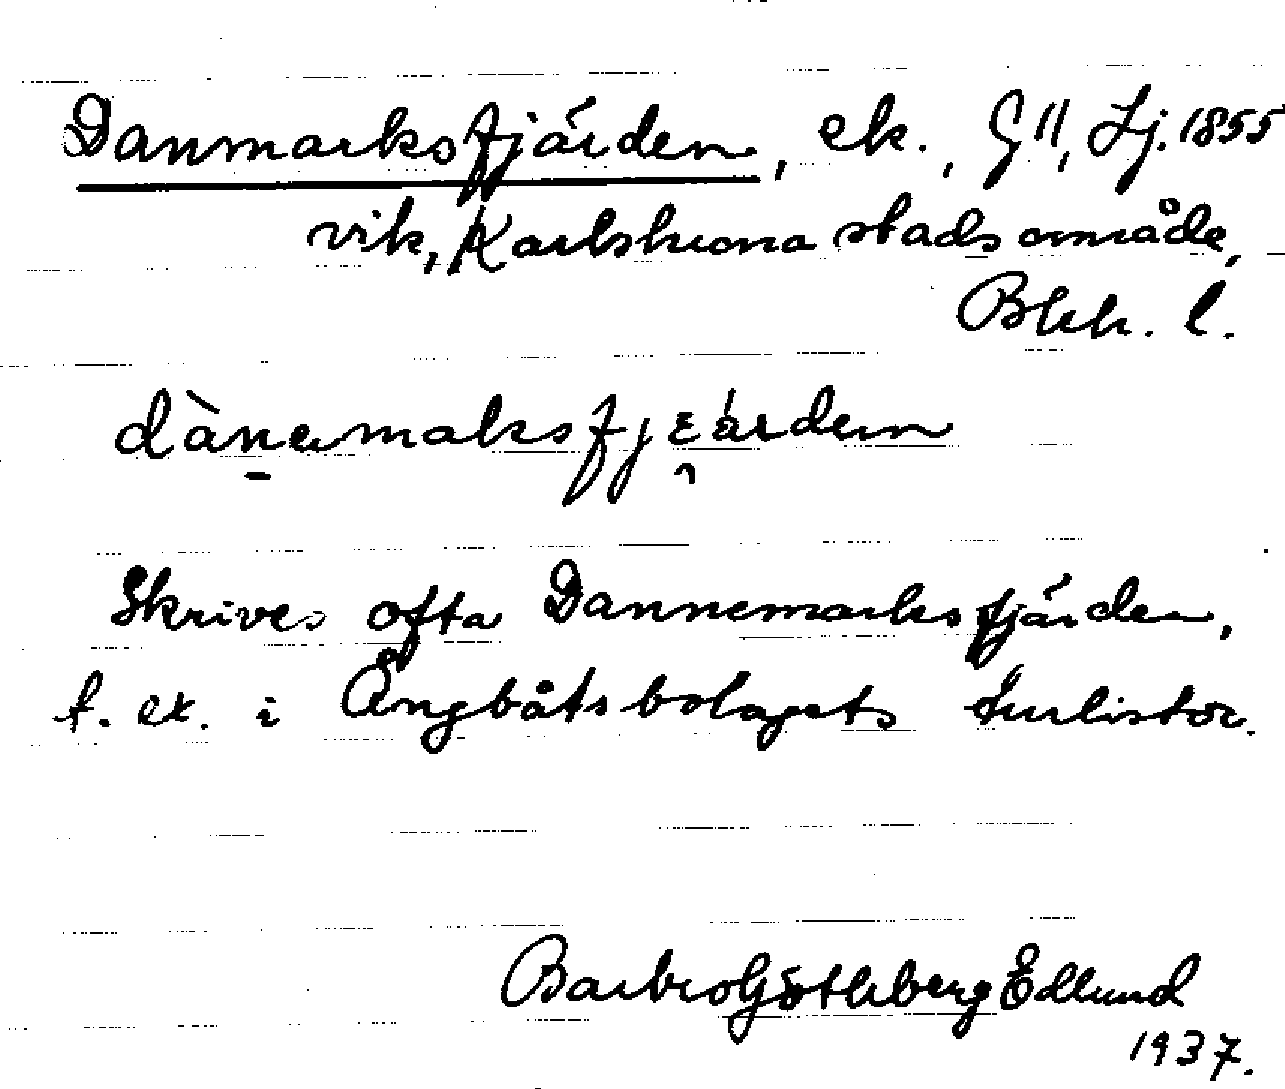 Danmarksfjärden, ek., G 11, Sj. 1855
vik, Karlskrona stads område,
Blek. l.
dànamaksfjɛárden
Skrives ofta Dannemarksfjärden,
t. ex. i Ångbåtsbolagets turlistor.
Barbro Götheberg Edlund
1937.